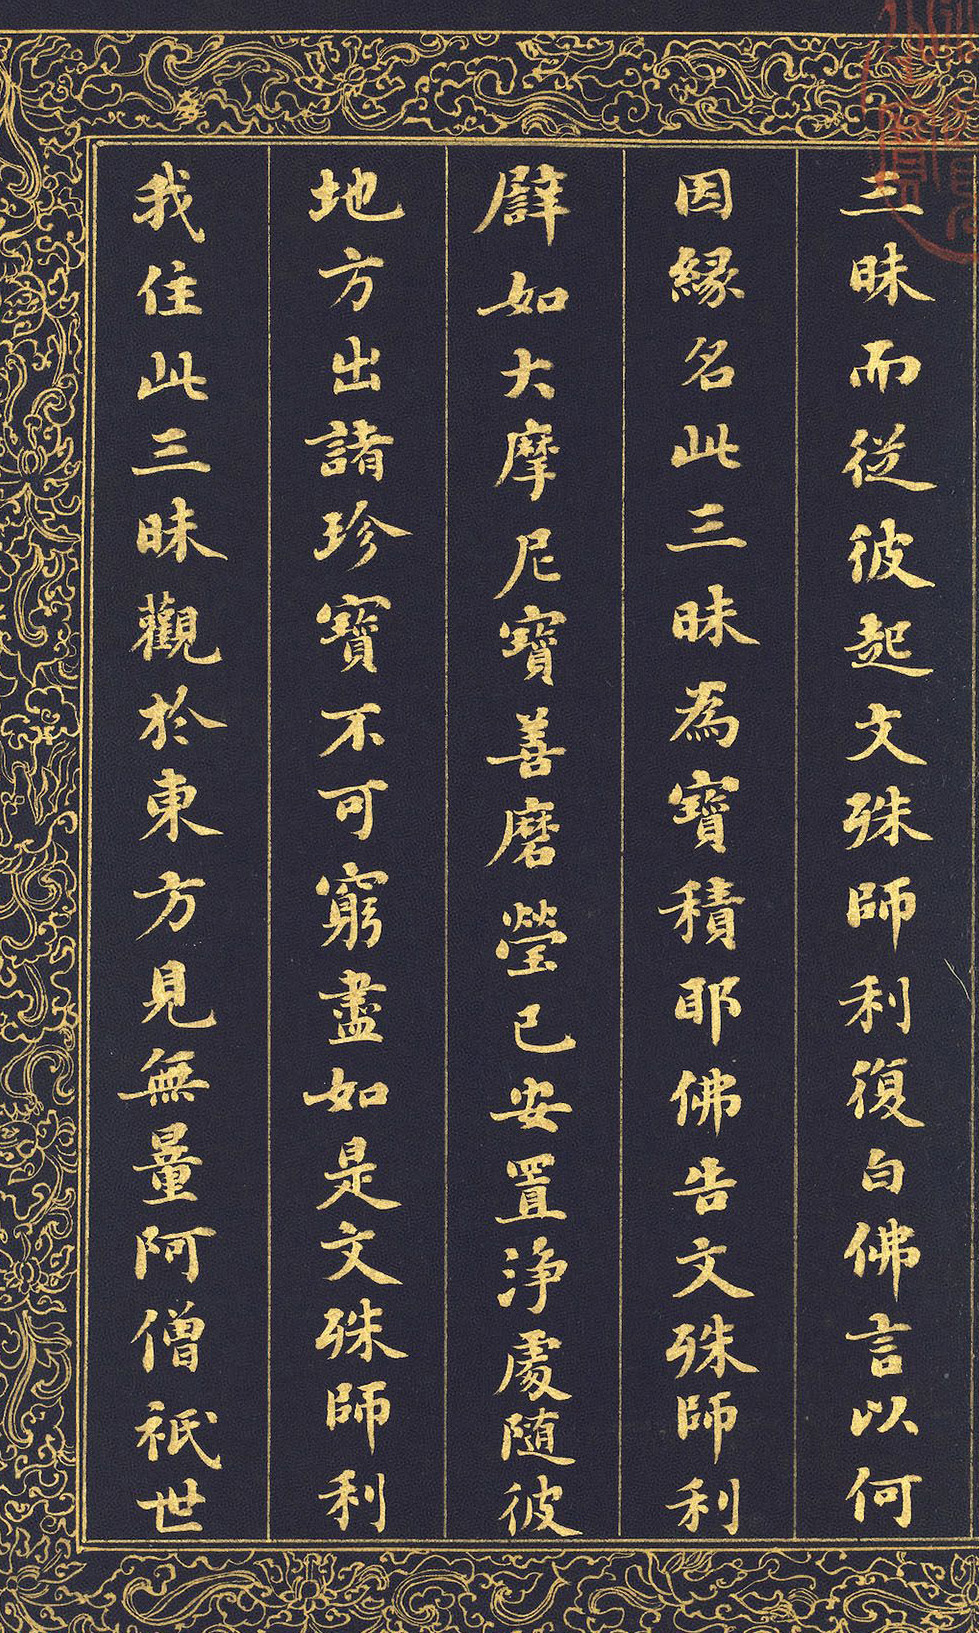 三昧而從彼起文殊師利復白佛言以何
因緣名此三昧為寶積耶佛告文殊師利
譬如大摩尼寶善磨瑩已安置淨處隨彼
地方出諸珍寶不可窮盡如是文殊師利
我住此三昧觀於東方見無量阿僧祇世